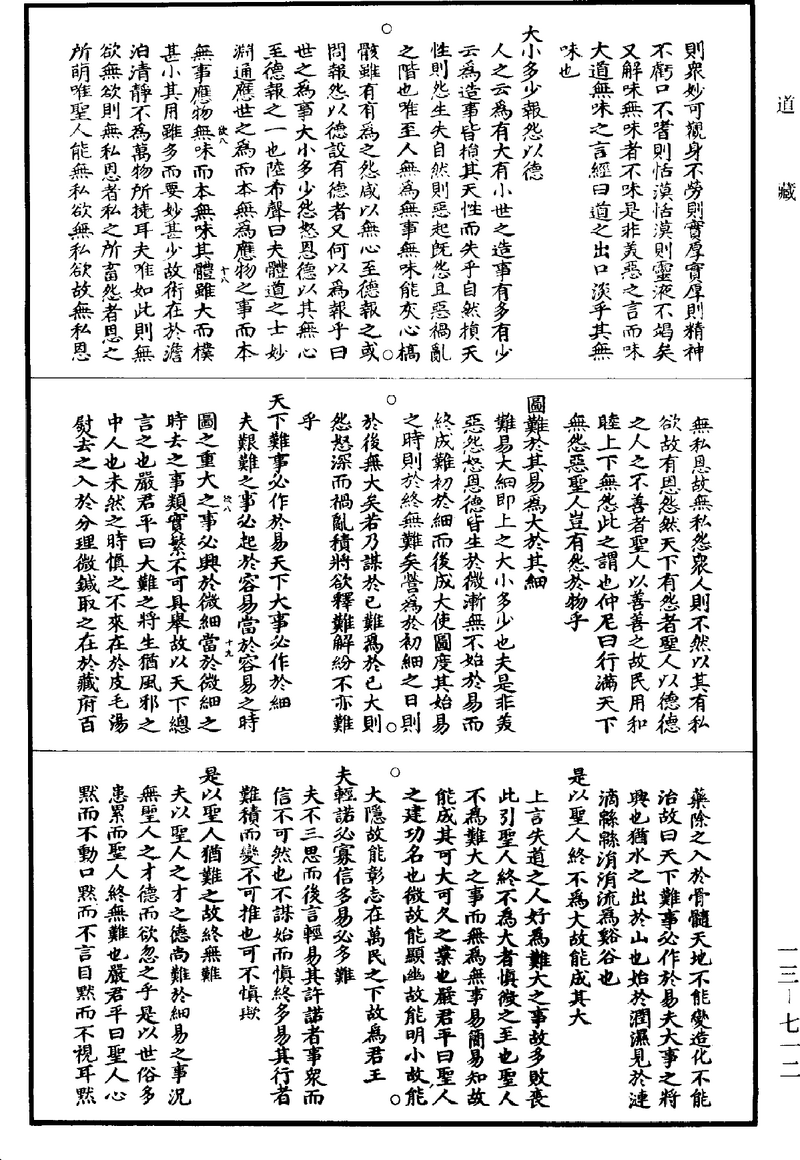 道藏
則衆妙可觀身不勞則實厚實厚則精神
不虧口不嗜則恬漠恬漠則靈液不竭矣
又解味無味者不味是非美惡之言而味
大道無味之言經曰道之出口淡乎其無
味也
大小多少報怨以德
人之云為有大有小世之造事有多有少
云為造事皆損其天性而失乎自然損天
性則怨生失自然則惡起既怨且惡禍亂
之階也唯至人無為無事無味能灰心槁
骸雖有有為之怨咸以無心至德報之或
問報怨以德設有德者又何以為報乎曰
世之為事大小多少怨怒恩德以其無心
至德報之一也陸希聲曰夫體道之士妙
淵通應世之為而本無為應物之事而本
無事應物無味而本無味其體雖大而樸
甚小其用雖多而要妙甚少故術在於澹
泊清靜不為萬物所撓耳夫唯如此則無
欲無欲則無私恩者私之所畜怨者恩之
所萌唯聖人能無私欲無私欲故無私恩
無私恩故無私怨衆人則不然以其有私
欲故有恩怨然天下有怨者聖人以德德
之人之不善者聖人以善善之故民用和
睦上下無怨此之謂也仲尼曰行滿天下
無怨惡聖人豈有怨於物乎
圖難於其易為大於其細
難易大細即上之大小多少也夫是非美
惡怨怒恩德皆生於微漸無不始於易而
終成難初於細而後成大使圖度其始易
之時則於終無難矣營為於初細之日則
於後無大矣若乃謀於已難為於已大則
怨怒深而禍亂積將欲釋難解紛不亦難
乎
天下難事必作於易天下大事必作於細
夫艱難之事必起於容易當於容易之時
圖之重大之事必興於微細當於微細之
時去之事類實繁不可具舉故以天下總
言之也嚴君平曰大難之將生猶風邪之
中人也未然之時慎之不來在於皮毛湯
熨去之入於分理微鍼取之在於藏府百
藥除之入於骨髓天地不能變造化不能
治故曰天下難事必作於易夫大事之將
興也猶水之出於山也始於潤濕見於漣
滴緜緜涓涓流為谿谷也
是以聖人終不為大故能成其大
上言失道之人好為難大之事故多敗喪
此引聖人終不為大者慎微之至也聖人
不為難大之事而無為無事易簡易知故
能成其可大可久之業也嚴君平曰聖人
之建功名也微故能顯幽故能明小故能
大隱故能彰志在萬民之下故為君王
夫輕諾必寡信多易必多難
夫不三思而後言輕易其許諾者事衆而
信不可然也不謀始而慎終多易其行者
難積而變不可推也可不慎歟
是以聖人猶難之故終無難
夫以聖人之才之德尚難於細易之事況
無聖人之才德而欲忽之乎是以世俗多
患累而聖人終無難也嚴君平曰聖人心
默而不動口默而不言目默而不視耳默
欲八
十八
欲八
十九
一三－七一二